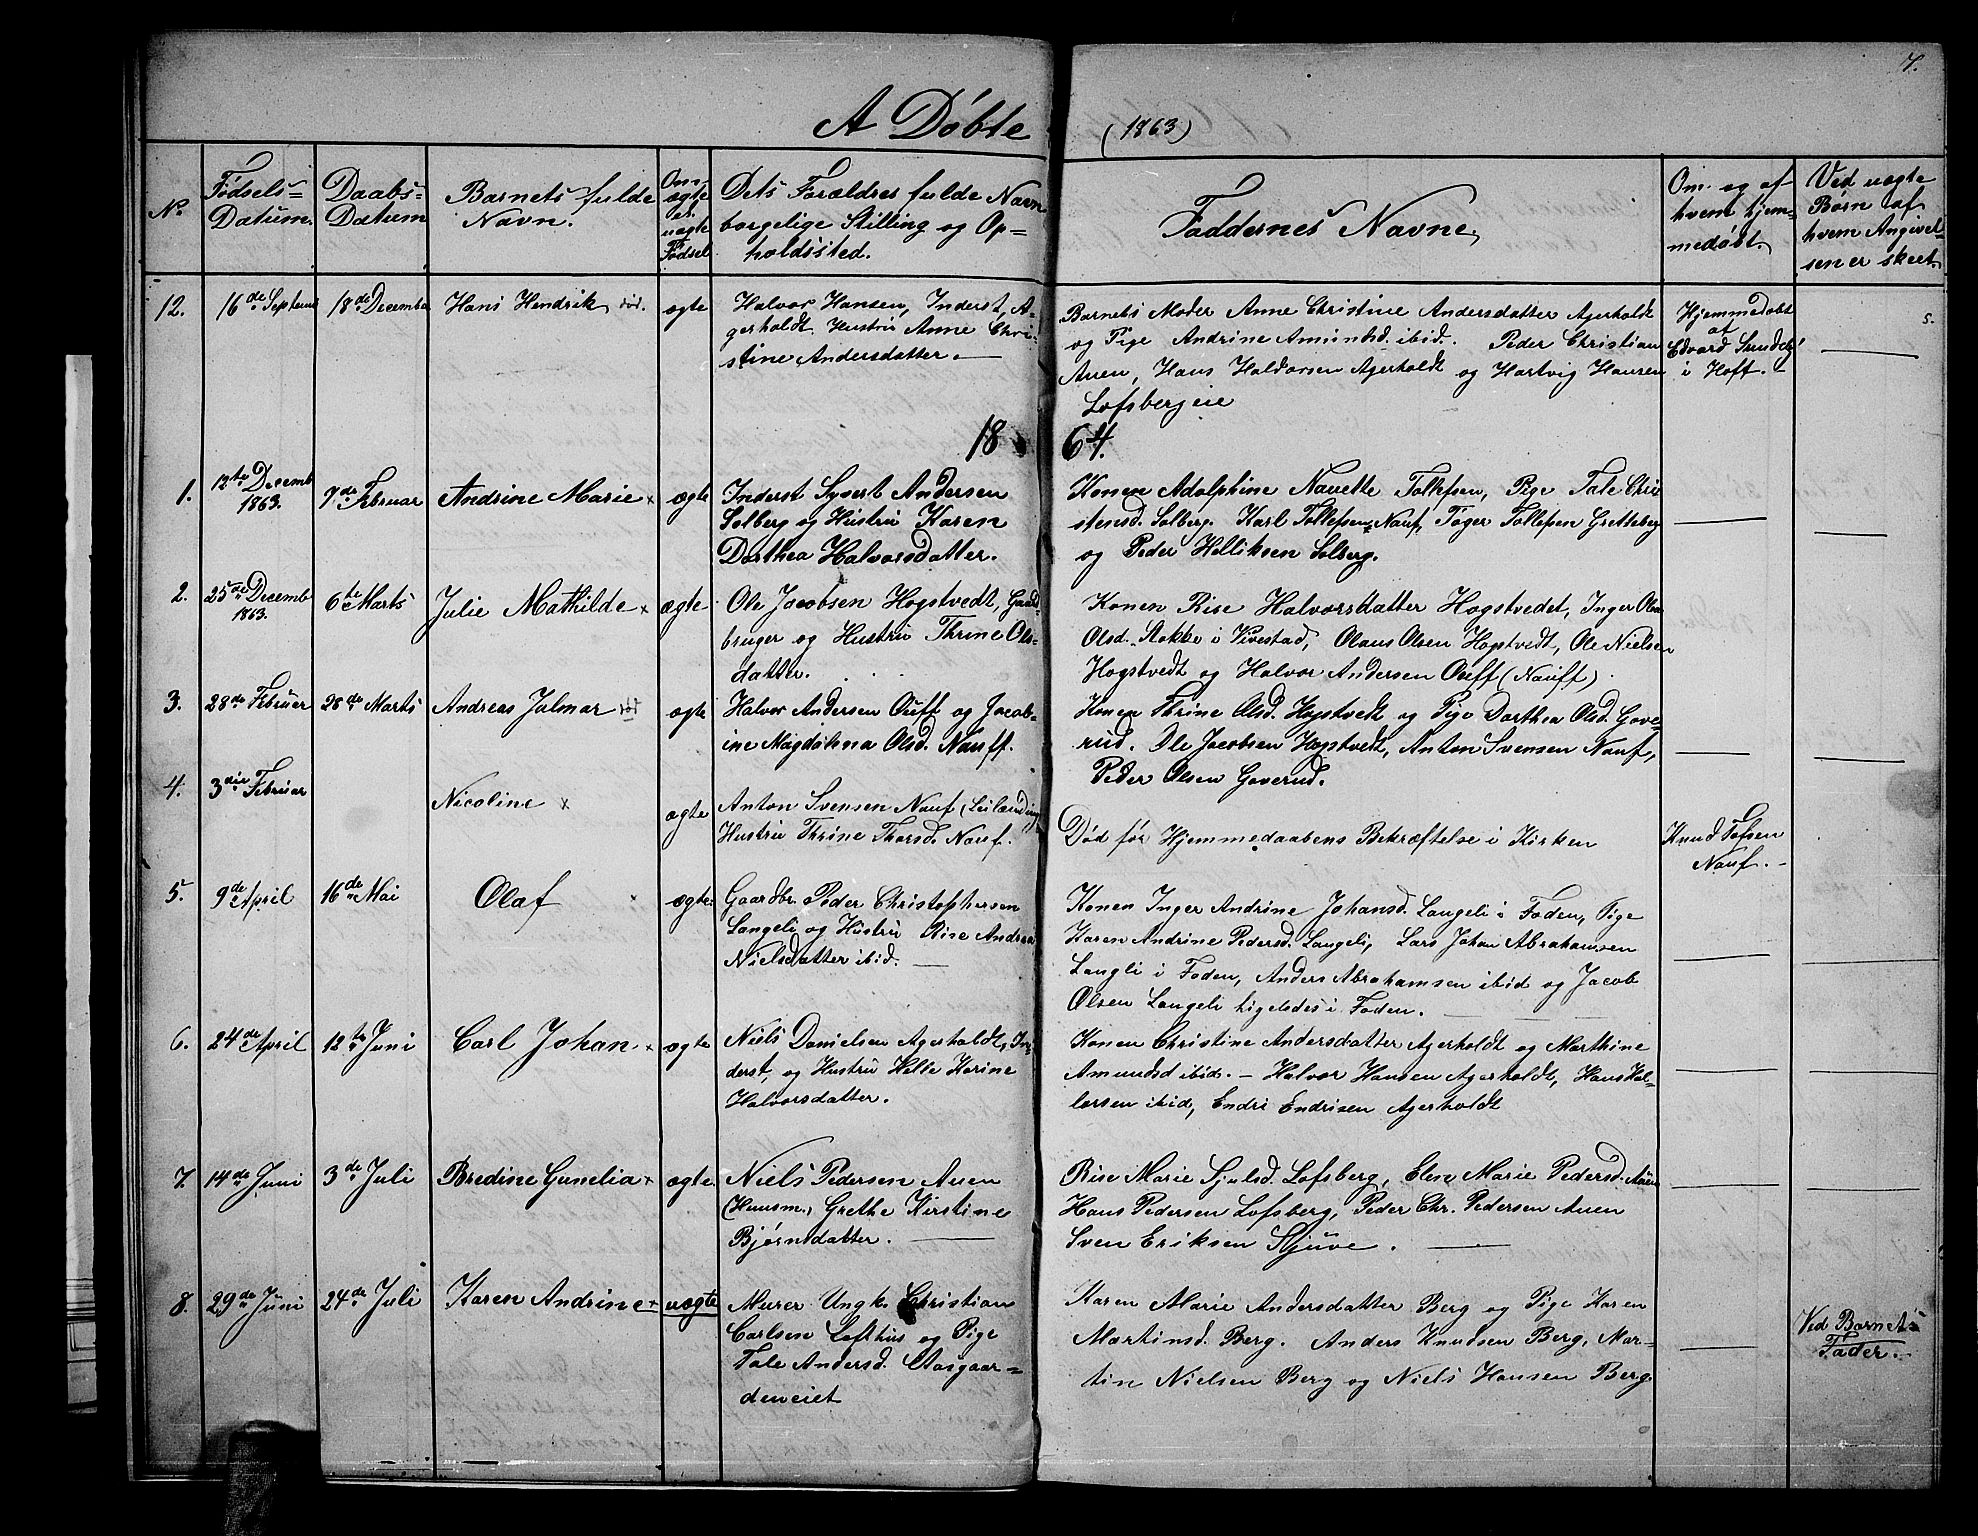 7.
A Døbte (1863)
No.
Fødsels=
Datum.
Daabs=
Datum
Barnets fulde
Navn.
Om
ægte
el.
uægte
Fødsel
Dets Forældres fulde Navn
borgelige Stilling og Op=
holdssted.
Faddernes Navne.
Om og af
hvem hjem=
medøbt.
Ved uægte
Børn af
hvem Angivel=
sen er skeet.
12.
16de Septemb
18de Decembe
Hans Hendrik død.
ægte
Halvor Hansen, Inderst, A=
gerholdt Hustru Anne Chri=
stine Andersdatter.
Barnets Moder Anne Christine Andersdatter Agerholdt
og Pige Andrine Amundsd. ibid. Peder Christian
Auen, Hans Haldorsen Agerholdt og Hartvig Hansen
Lofsbergeie
Hjemmedøbt
af
Edvard
i Hoft.
5.
1864.
1.
12te Decemb
1863.
7de Februar
Andrine Marie x
ægte
Inderst Syvert Andersen
Solberg og Hustru Karen
Dorthea Halvorsdatter.
Konen Adolphine Nauette Tollefsen, Pige Tale Chri
stensd. Solberg. Karl Tollefsen Nauf, Toger Tollefsen Gretteberg
og Peder Helliksen Solberg.
2.
25de Decemb
1863.
6te Marts
Julie Mathilde x
ægte
Ole Jacobsen Hogstvedt, Gaard=
bruger og Hustru Thrine Ols=
datter.
Konen Rise Halvorsdatter Hogstvedet, Inger Olea
Olsd. Stokke i Vivestad, Olaus Olsen Hogstvedt, Ole Nielsen
Hogstvedt og Halvor Andersen Ouff (Nauff).
3.
28de Februer
28de Marts
Andreas Jalmar
ægte
Halvor Andersen Ouff og Jacob=
ine Magdahna Olsd. Nauff.
Konen Thrine Olsd. Hogstvedt og Pige Dorthea Olsd. Gove=
rud. Ole Jacobsen Hogstvedt, Anton Svensen Nauf,
Peder Olsen Goverud.
4.
3die Februar
Nicoline x
ægte
Anton Svensen Nauf (Leilænding)
Hustru Thrine Thorsd. Nauf.
Død før Hjemmedaabens Bekræftelse i Kirken
Knud Tofsen
Nauf.
5.
9de April
16de Mai
Olaf x
ægte
Gaardbr. Peder Christophersen
Langeli og Hustru Rise Andrea
Nielsdatter ibid.
Konen Inger Andrine Johansd. Langeli i Foden, Pige
Karen Andrine Pedersd. Langeli, Lars Johan Abrahamsen
Langli i Foden, Anders Abrahamsen ibid og Jacob
Olsen Langeli ligeledes i Foden.
6.
24de April
12te Juni
Carl Johan x
ægte
Niels Danielsen Agerholdt, In=
derst, og Hustru Helle Karine
Halvorsdatter.
Konen Christine Andersdatter Agerholdt og Marthine
Amundsd ibid. – Halvor Hansen Agerholdt, Hans Hal=
lersen ibid, Endri Endrisen Agerholdt
7.
14de Juni
3de Juli
Bredine Gunelia x
ægte
Niels Pedersen Auen
(Huusm.) Grethe Kirstine
Bjørnsdatter.
Rise Marie Sjulsd. Lofsberg, Elen Marie Pedersd. Auen
Hans Pedersen Lofsberg, Peder Chr. Pedersen Auen
Sven Eriksen Stjuve.
8.
29de Juni
24de Juli
Karen Andrine +
uægte
Murer Ungk. Christian
Carlsen Lofthus og Pige
Tale Andersd. Aasgaar=
deneiet
Karen Marie Andersdatter Berg og Pige Karen
Martinsd. Berg. Anders Knudsen Berg, Mar=
tin Nielsen Berg og Niels Hansen Berg.
Ved Barnets
Fader.